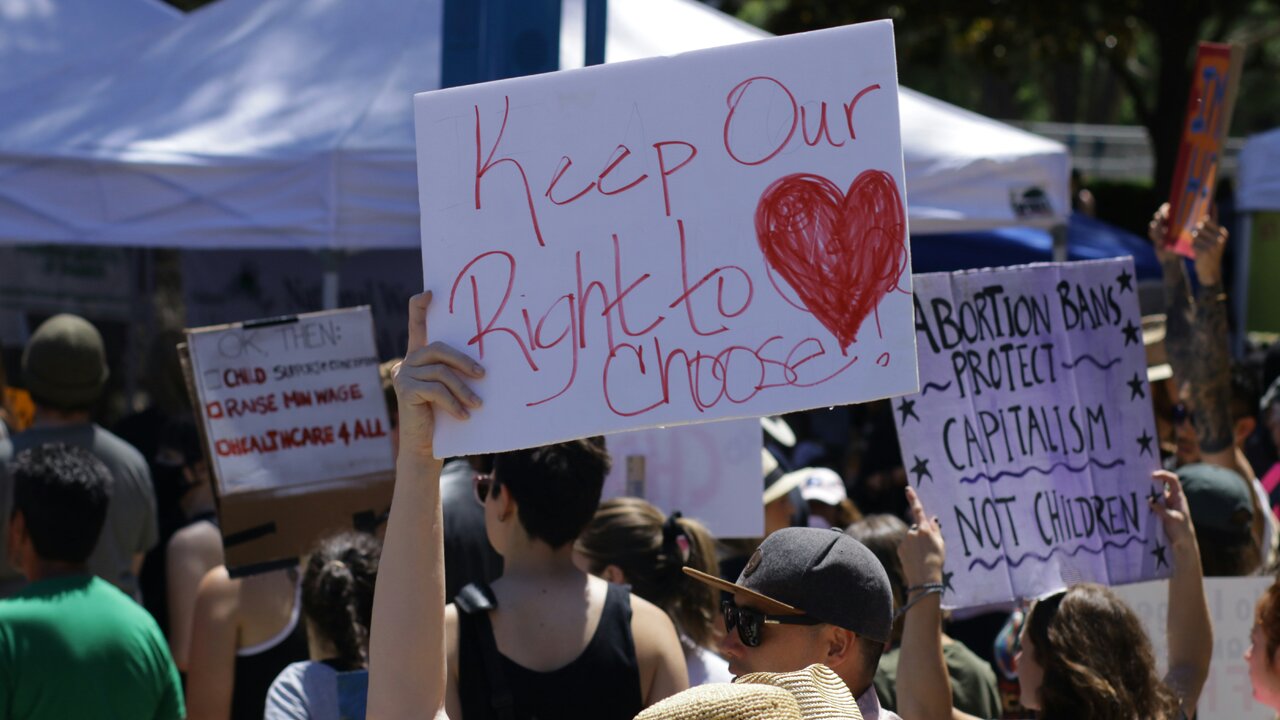 Keep Our
Right to
Choose!
OK, THEN:
CHILD SUPPORT @ CONCEPTION
RAISE MIN WAGE
HEALTHCARE 4 ALL
ABORTION BANS
PROTECT
CAPITALISM
NOT CHILDREN